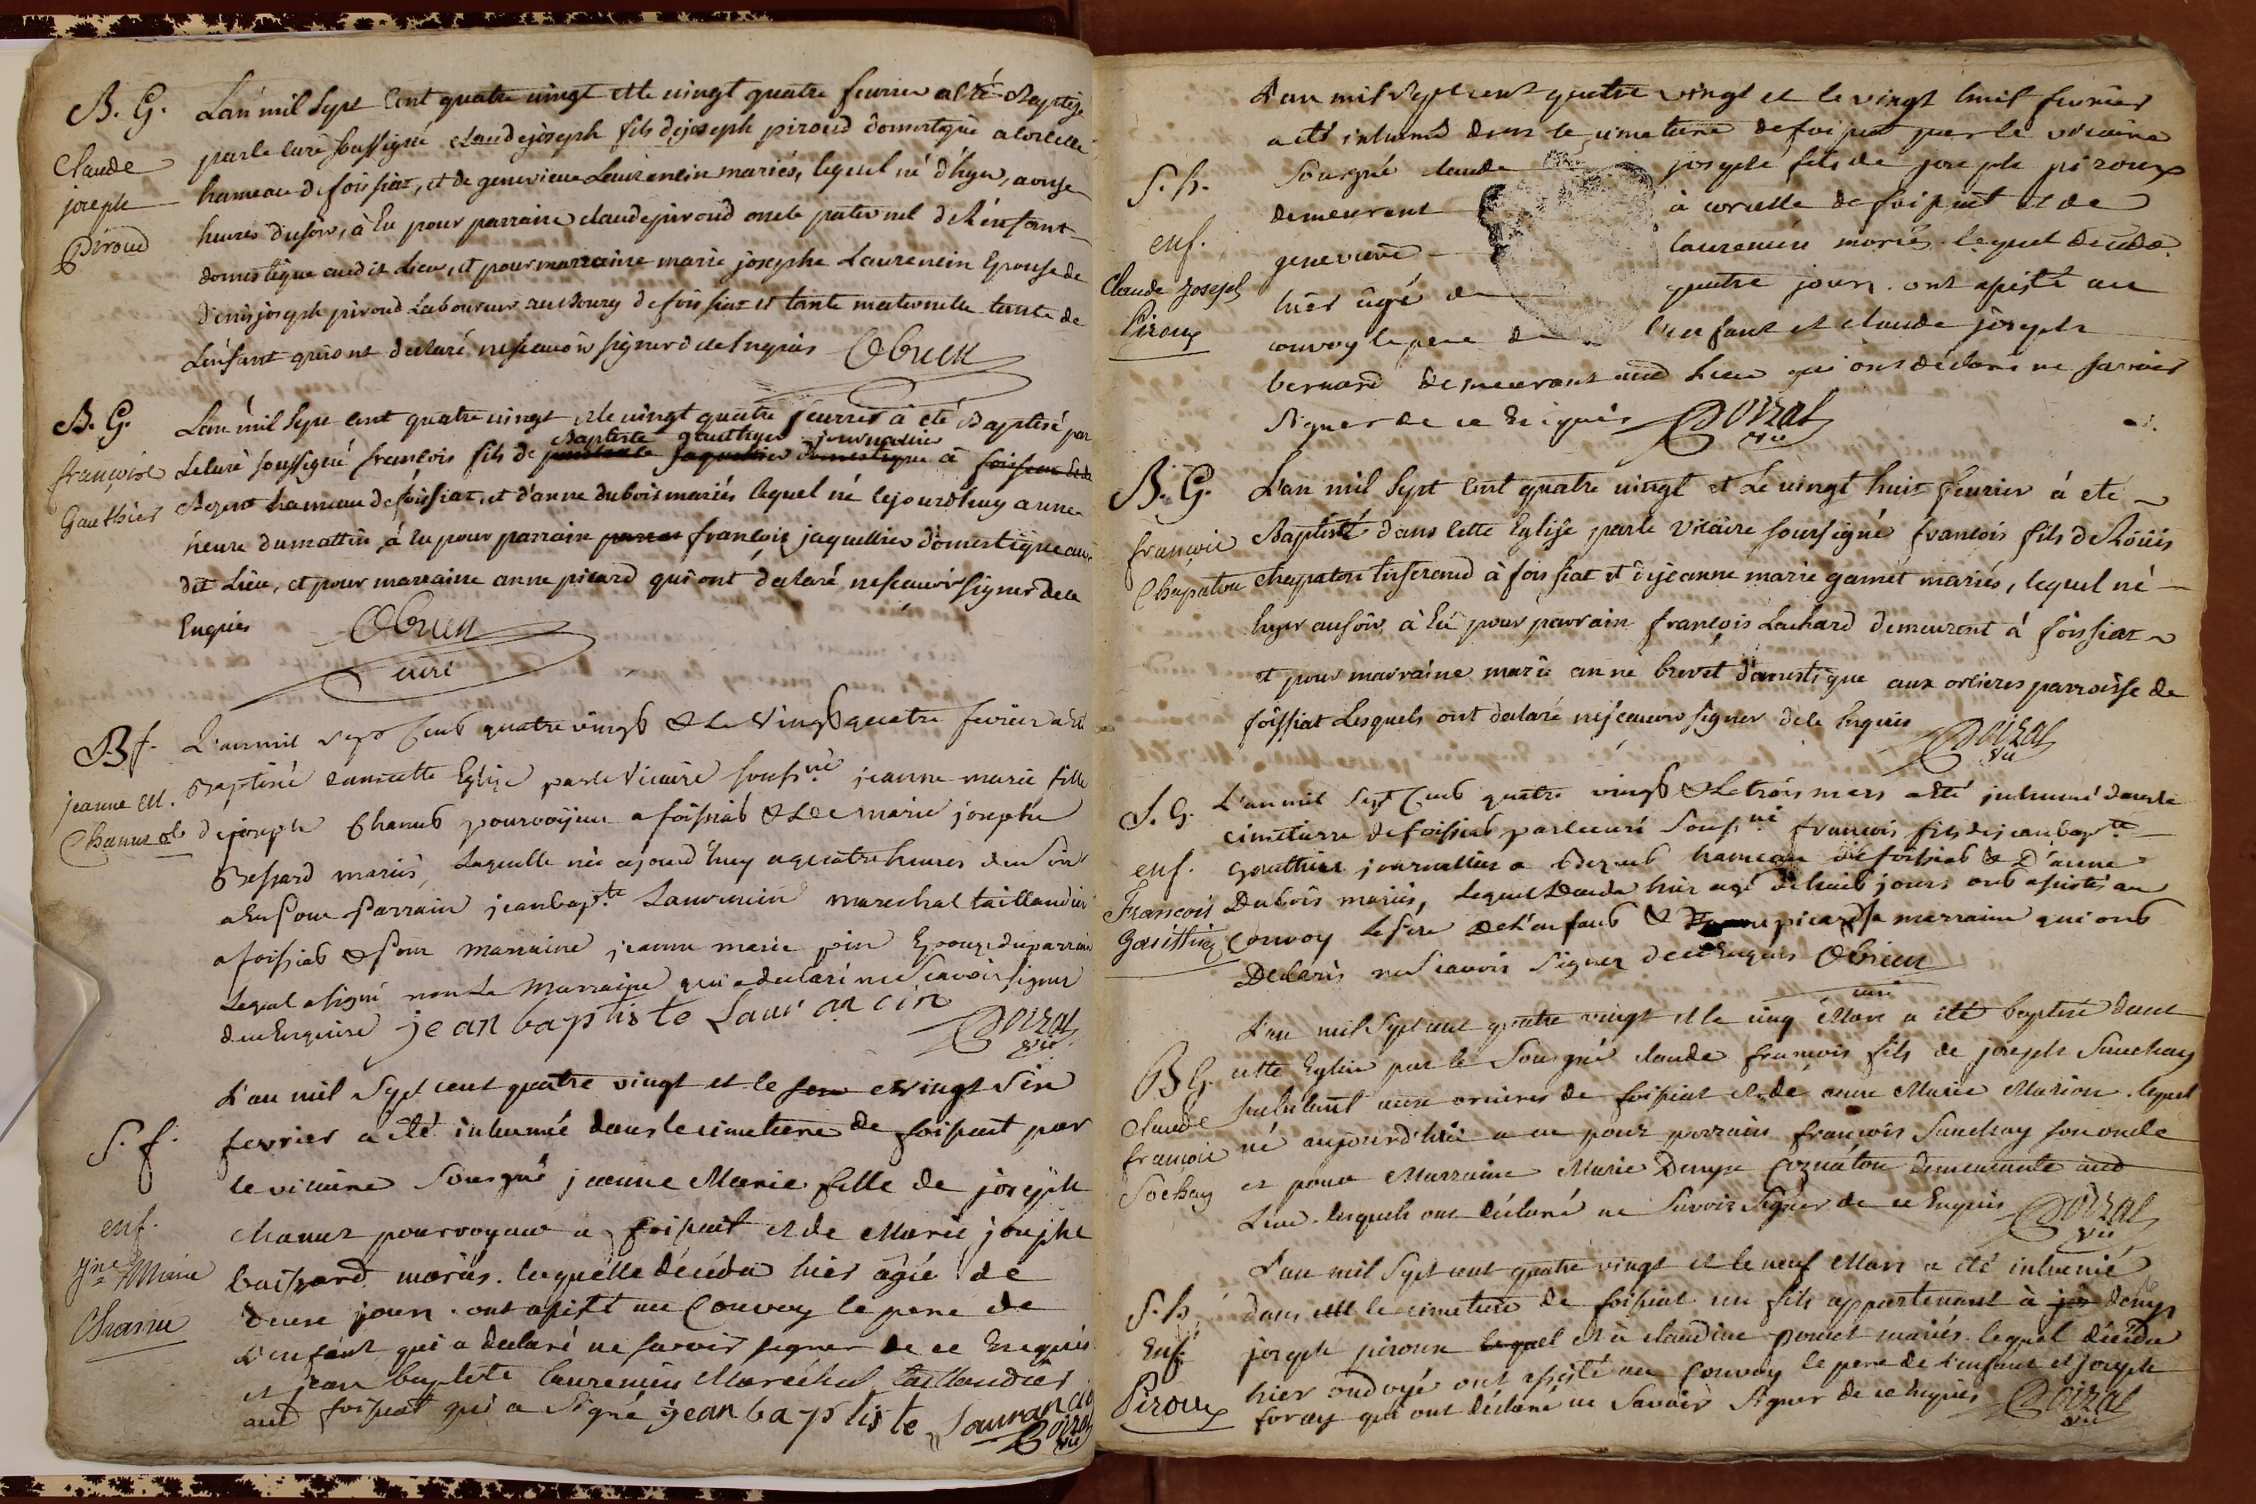 B. G.
Claude
joseph
Piroud
L'an mil sept cent quatre vingt et le vingt quatre feuvrier a eté Baptisé
par le curé soussigné claude joseph fils de joseph piroud domestique a corcelle
hameau de foissiat, et de genevieve Laurencin mariés, lequel né d'hyer, a onze
heures du soir, à Eu pour parraine claude piroud oncle paternel de l'énfant
domestique audit Lieu, et pour marraine marie josephe Laurencin Epouse de
denis joseph piroud Laboureur au Bourg de foissiat et tante maternelle tante de
L'enfant qui ont declaré ne scavoir signer de ce Enquis Obrien
B. G.
françois
Gauthier
L'an mil sept cent quatre vingt et le vingt quatre feuvrier à eté Baptisé par
Baptiste gauthier journalier
Le curé soussigné francois fils de jaquellier domestique à foissiat et de
Bezent hameau de foissiat, et d'anne dubois mariés lequel né cejourd'huy a une
heure du mattin, à Eu pour parrain francois jaquellier domestique au
dit Lieu, et pour marraine anne picard qui ont declaré ne scavoir signer de ce
Enquis Obrien
curé
B f.
jeanne M.
Chanut
L'an mil sept Cent quatre vingt & Le Vingt quatre fevrier a Eté
Baptisée dans cette Eglise par le Vicaire souss.né jeanne marie fille
de joseph Chanut pourvoyeur a foissiat & de marie josephe
Bessard mariés, Laquelle née ajourd'huy a quatre heures du soir
a Eu Pour Parrain jean bap.te Laurencin marechal taillandier
a foissiat & Pour Marraine jeanne marie pin Epouse du parrain
Lequel a signé non La Marraine qui a declaré ne Scavoir signer
de ce Enquise jean baptiste Laurancin Doizat
vic
S. f.
enf.
J.ne Marie
Chanu
L'an mil Sept cent quatre vingt et le vingt Six
fevrier a été inhumée dans le cimetiere de foissiat par
le vicaire Sousigné jeanne Marie fille de joseph
chanut pourvoyeur a foissiat et de Marie josephe
baissard mariés. laquelle décéda hier âgée de
deux jours. ont asisté au Convoy le pere de
l'enfant qui a declaré ne savoir signer de ce Enquis
et jean baptiste laurencin Maréchal taillandier
aud foissiat qui a Signé jean baptiste Lauran cin
Doizat
vic
S. h.
enf.
Claude Joseph
Piroux
L'an mil Sept cent quatre vingt et le vingt huit fevrier
a été inhumé dans le cimetiere de foissiat par le vicaire
Sousigné claude joseph fils de joseph piroux
demeurant à corcelle de foissiat et de
genevieve laurencin mariés. lequel décéda
hier âgé de quatre jours. ont asisté au
convoy le pere de l'enfant et claude joseph
bernard demeurant aud Lieu qui ont déclaré ne savoir
Signer de ce Enquis Doizat
vic
B. G.
françoi
Chapaton
L'an mil Sept Cent quatre vingt et Le vingt huit fevrier à eté
Baptisé dans Cette Eglise par le Vicaire soussigné francois fils de Loüis
chapaton tisserand à foissiat et de jeanne marie gamet mariés, lequel né
hyer au soir, à Eu pour parrain françois Lachard demeurent à foissiat
et pour marraine marie anne brevet domestique aux orcieres parroisse de
foissiat Lesquels ont declaré ne scavoir signer de ce Enquis Doizat
vic
S. G.
enf.
Francois
Gautthier
L'an mil Sept Cent quatre vingt & Le trois mars a Eté inhumé dans le
cimetierre de foissiat par le curé Souss.né francois fils de jean bap.te
Gauthier journallier a Bezent hameau de foissiat & D'anne
Dubois mariés, Lequel Deceda hier agé de huit jours ont asistés au
Convoy Le Père De L'enfant & picard sa marraine qui ont
Declarés ne Scavoir Signer de ce Enquis Obrien
curé
B G.
Claude
françoi
Sochay
L'an mil Sept cent quatre vingt et le cinq Mars a été baptisé dans
cette Eglise par le Sousigné claude francois fils de joseph Sauchay
habitant aux orcieres de foissiat et de anne Marie Marion. lequel
né aujourd'hui a eu pour parrain françois Sauchay son oncle
et pour Marraine Marie Denyse Coznâton demeurante aud
Lieu. lesquels ont déclaré ne Savoir Signer de ce Enquis Doizat
vic
S. h.
Enf.
Piroux
L'an mil Sept cent quatre vingt et le neuf Mars a été inhumé
dans le cimetiere de foissiat un fils appartenant à denys
joseph piroux lequel et à claudine poncet mariés. lequel décéda
hier ondoyé ont asisté au Convoy le pere de l'enfant et joseph
foray qui ont déclaré ne Savoir Signer de ce Enquis Doizat
vic